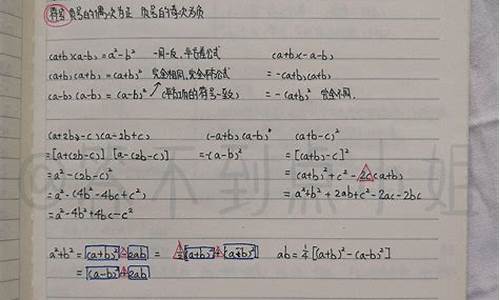 符号 负号的偶次为正 负号的奇次为负
(a+b)(a-b)=a²-b² 一同一反,平方差公式 (a+b)(-a-b)
(a+b)(a+b)=(a+b)² 完全相同,完全平方公式 =-(a+b)(a+b)
(a-b)(a-b)=(a-b)² (平方项的符号一致) =-(a+b)² 完全不同.
(a+2b-c)(a-2b+c) (-a+b)(a-b) (a+b-c)²
=[a+(2b-c)][a-(2b-c)] =-(a-b)² =[(a+b)-c]²
=a²-(2b-c)² =(a+b)²+c²-2c(a+b)
=a²-(4b²-4bc+c²) =a²+b²+2ab+c²-2ac-2bc
=a²-4b²+4bc-c²
a²+b²=(a+b)²-2ab = ½[(a+b)²+(a-b)²] ab=¼[(a+b)²-(a-b)²]
=(a-b)²+2ab
不到
姐